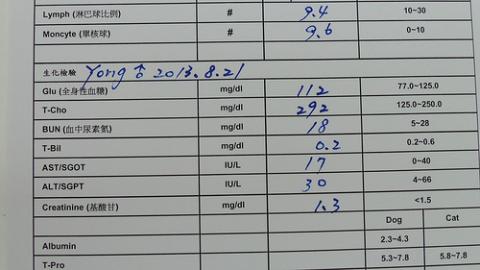 Lymph (淋巴球比例) # 9.4 10~30
Moncyte (單核球) # 9.6 0~10
生化檢驗 Yong 2013.8.21
Glu (全身性血糖) mg/dl 112 77.0~125.0
T-Cho mg/dl 292 125.0~250.0
BUN (血中尿素氮) mg/dl 18 5~28
T-Bil mg/dl 0.2 0.2~0.6
AST/SGOT IU/L 17 0~40
ALT/SGPT IU/L 30 4~66
Creatinine (基酸甘) mg/dl 1.3 <1.5
Dog Cat
Albumin 2.3~4.3
T-Pro 5.3~7.8 5.8~7.8